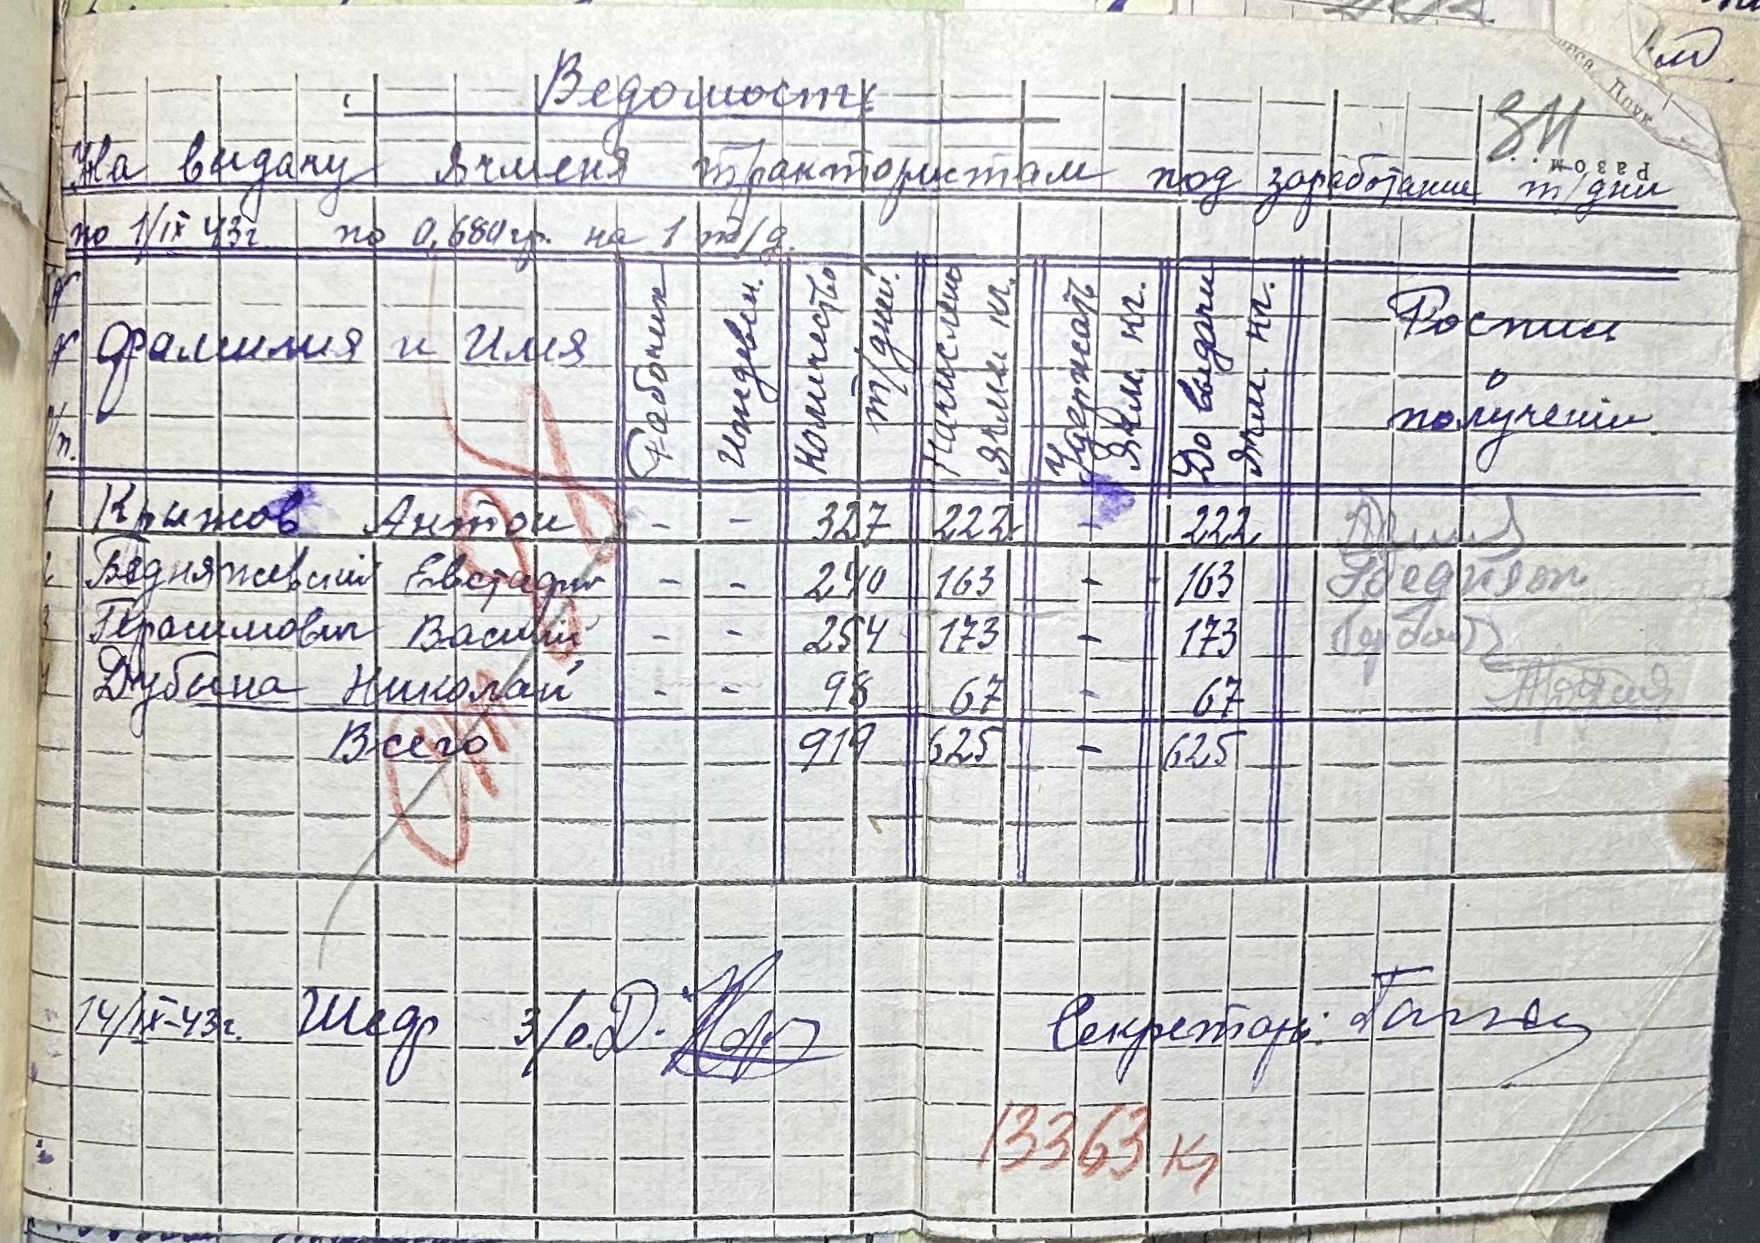 Ведомость
На выдачу ячменя трактористам под заработание т/дни
по 1/IX 43г. по 0,680 гр. на 1 т/д.
№ № п/п.
Фамилия и Имя
Рабочих
Иждевен.
Количество т/дней.
Начислено Ячмен кг.
Удержать Ячм. кг.
До выдачи Ячм. кг.
Роспись о получении.
1 Крыжов Антон - - 327 222 - 222
2 Бедняжевский Евстафи - - 240 163 - 163
3 Герасимович Василий - - 254 173 - 173
4 Дубына Николай - - 98 67 - 67
Всего 919 625 - 625
14/IX-43г. З/о. Д. Секретарь:
13363 кг
Разом